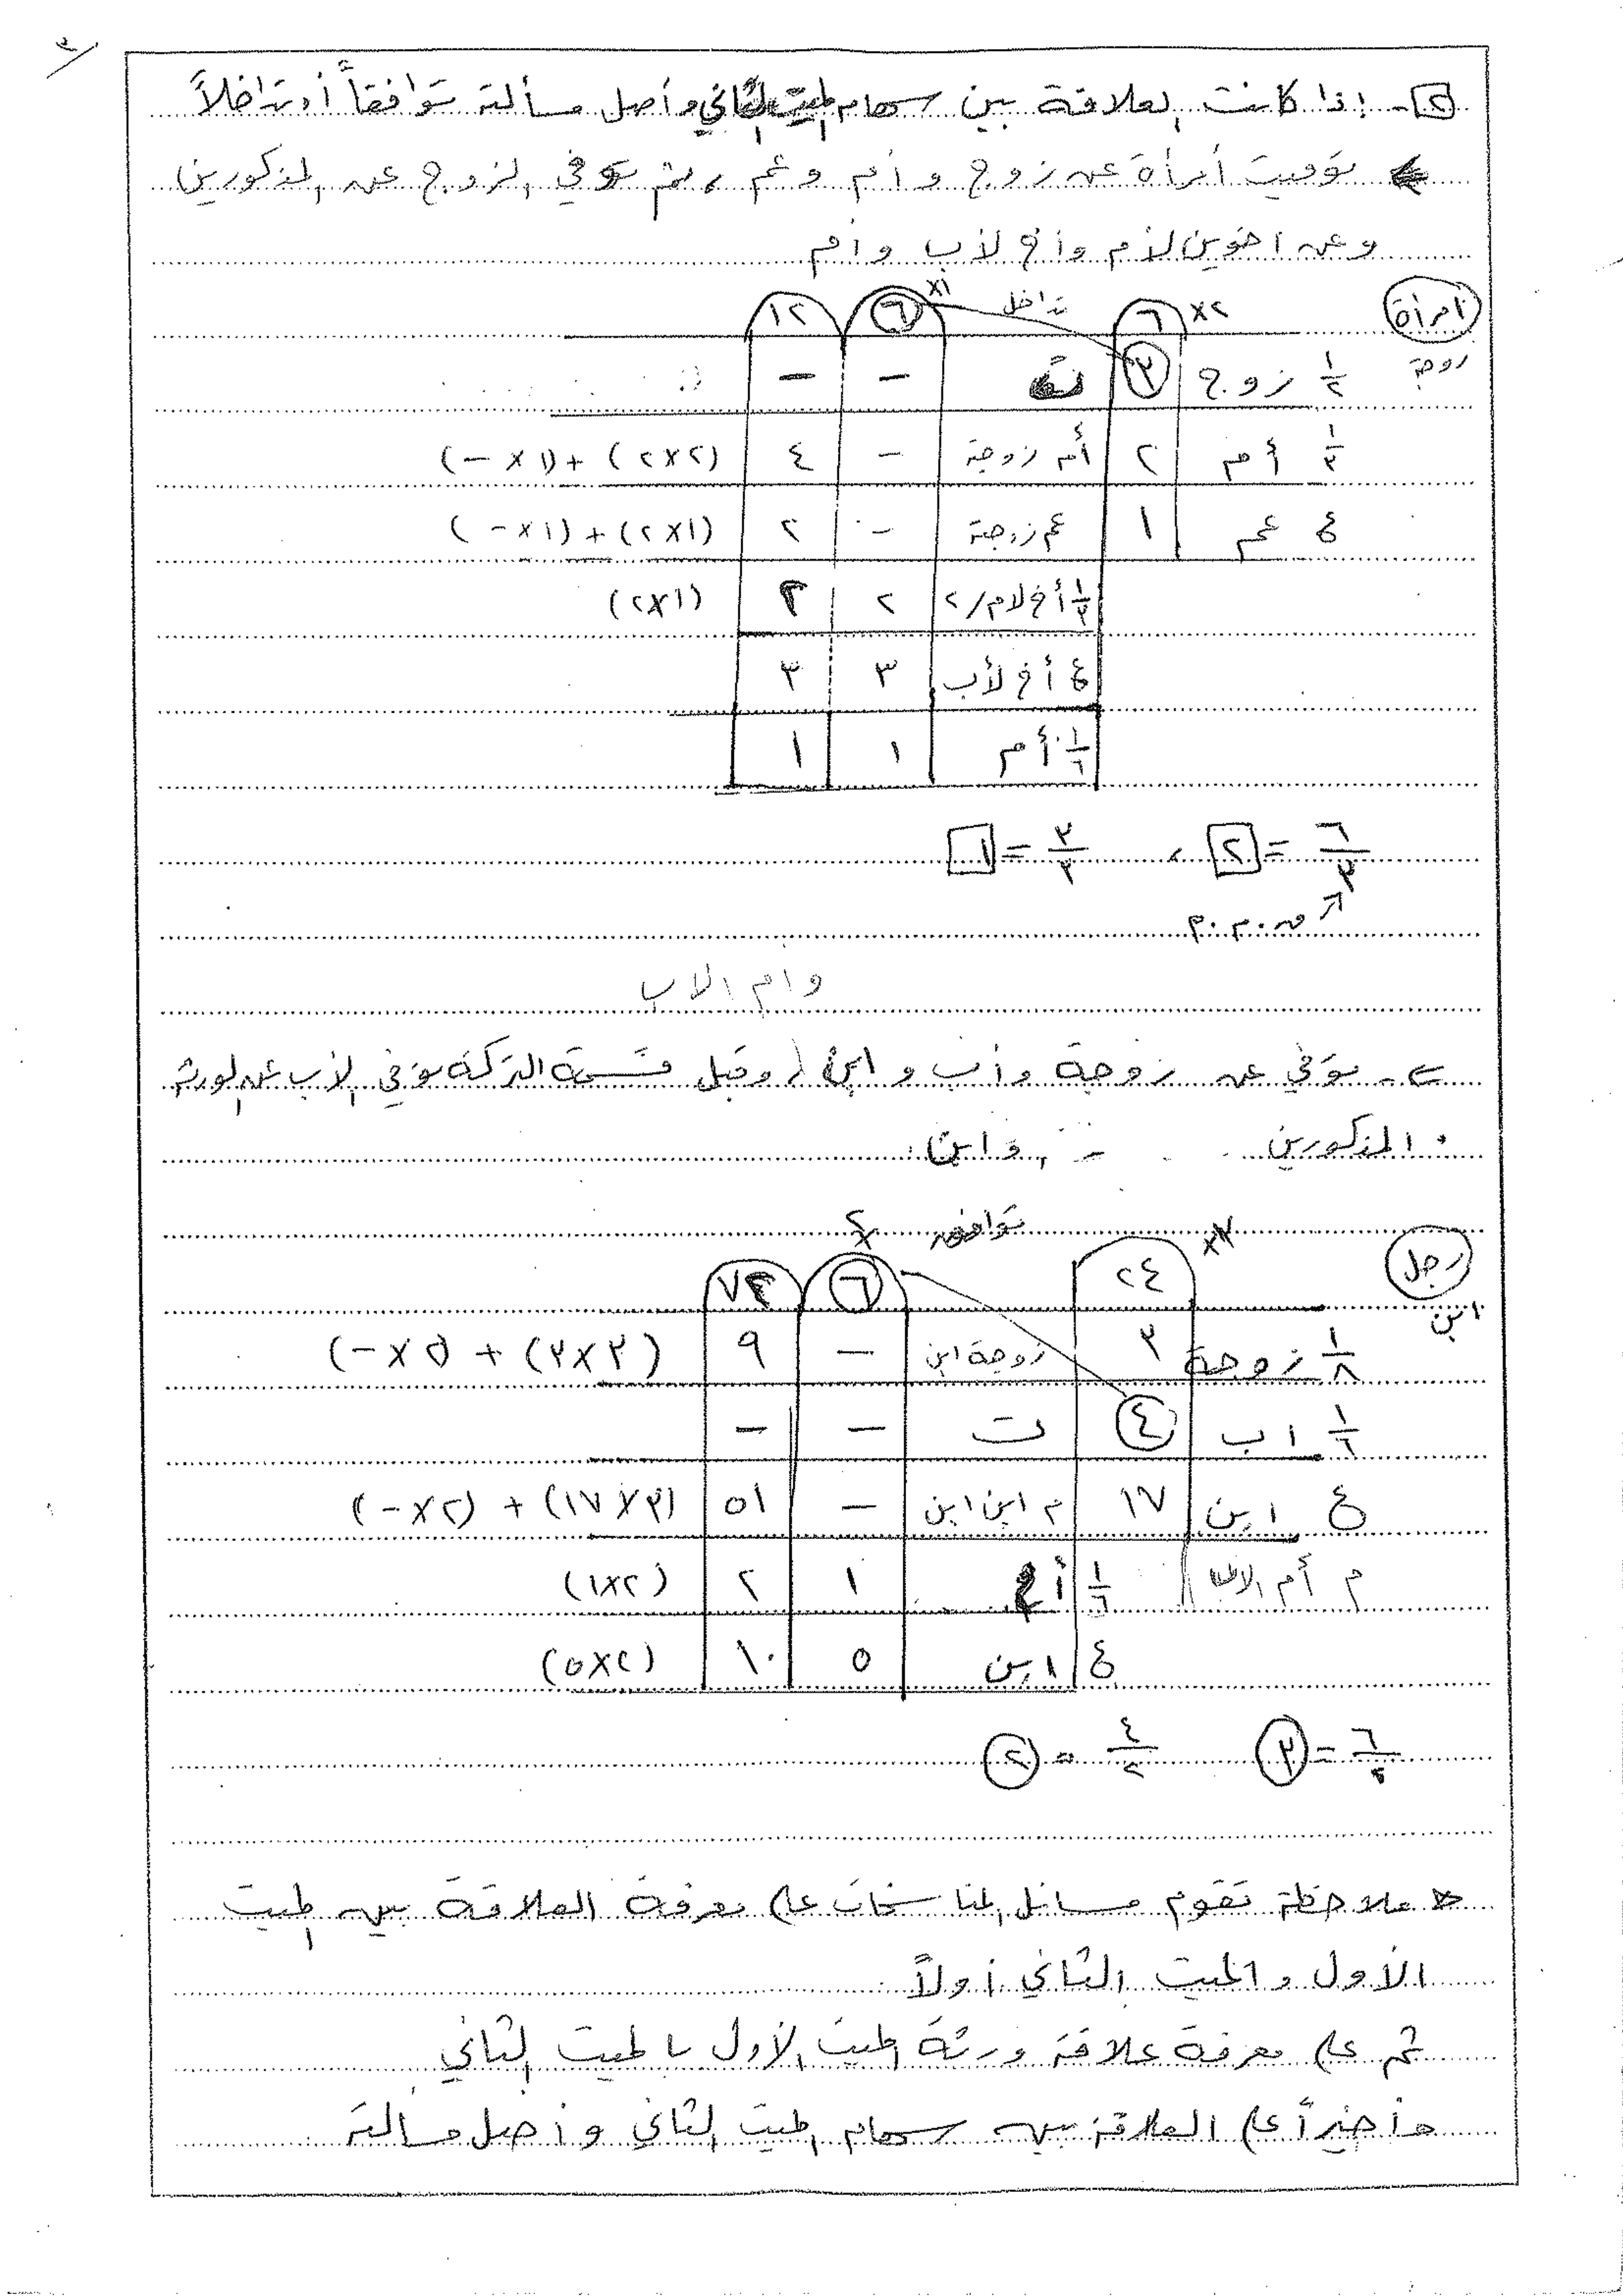 ٣
٢- إذا كانت العلاقة بين سهام الميت الثاني وأصل مسألته توافقاً أو تداخلاً
توفيت امرأة عن زوج وأم وعم، ثم توفي الزوج عن المذكورين
وعن أخوين لأم وأخ لأب وأم
امرأة ٦ ×٢ تداخل ٦ ×١ ١٢
زوجة ١/٢ زوج ٣ ت - -
١/٣ أم ٢ أم زوجة - ٤ (٢×٢)+(١×-)
ع عم ١ عم زوجة - ٢ (٢×١)+(١×-)
١/٣ أخ لأم/٢ ٢ ٢ (٢×١)
ع أخ لأب ٣ ٣
١/٦ أم ١ ١
٦/٣ = ٢ ، ٣/٣ = ١
ق.م.م
وأم الأب
توفي عن زوجة وأب وابن، وقبل قسمة التركة توفي الأب عن الورثة
المذكورين وابن
رجل ٢٤ ×٣ توافق ٦ ×٢ ٧٢
ابن
١/٨ زوجة ٣ زوجة ابن - ٩ (٣×٣) + (٢×-)
١/٦ اب ٤ ت - -
ع ابن ١٧ م ابن ابن - ٥١ (٣×١٧) + (٢×-)
م أم الأب ١/٦ أم ١ ٢ (٢×١)
ع ابن ٥ ١٠ (٢×٥)
٦/٢ = ٣ ٤/٢ = ٢
* ملاحظة تقوم مسائل المناسخات على معرفة العلاقة بين الميت
الأول والميت الثاني أولاً
ثم على معرفة علاقة ورثة الميت الأول بالميت الثاني
وأخيراً على العلاقة بين سهام الميت الثاني وأصل مسألته